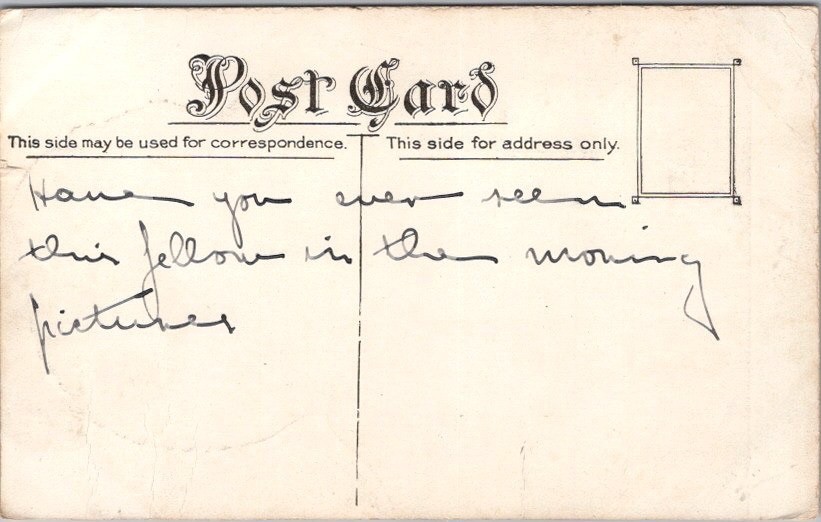 Post Card
This side may be used for correspondence.
This side for address only.
Have you ever seen
this fellow in the moving
pictures